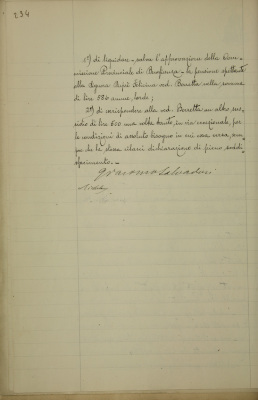 234
1º) di liquidare, salva l'approvazione della Com-
missione Provinciale di Beneficenza, la pensione spettante
alla Signora Felicina ved. Berretta nella somma
di lire 550 annue, lorde;
2º) di corrispondere alla ved. Berretta un altro sus-
sidio di lire 600 una volta tanto, in via eccezionale, per
le condizioni di assoluto bisogno in cui essa versa,
que de la stessa rilasci dichiarazione di pieno soddi-
sfacimento.
Giacomo Salvadori